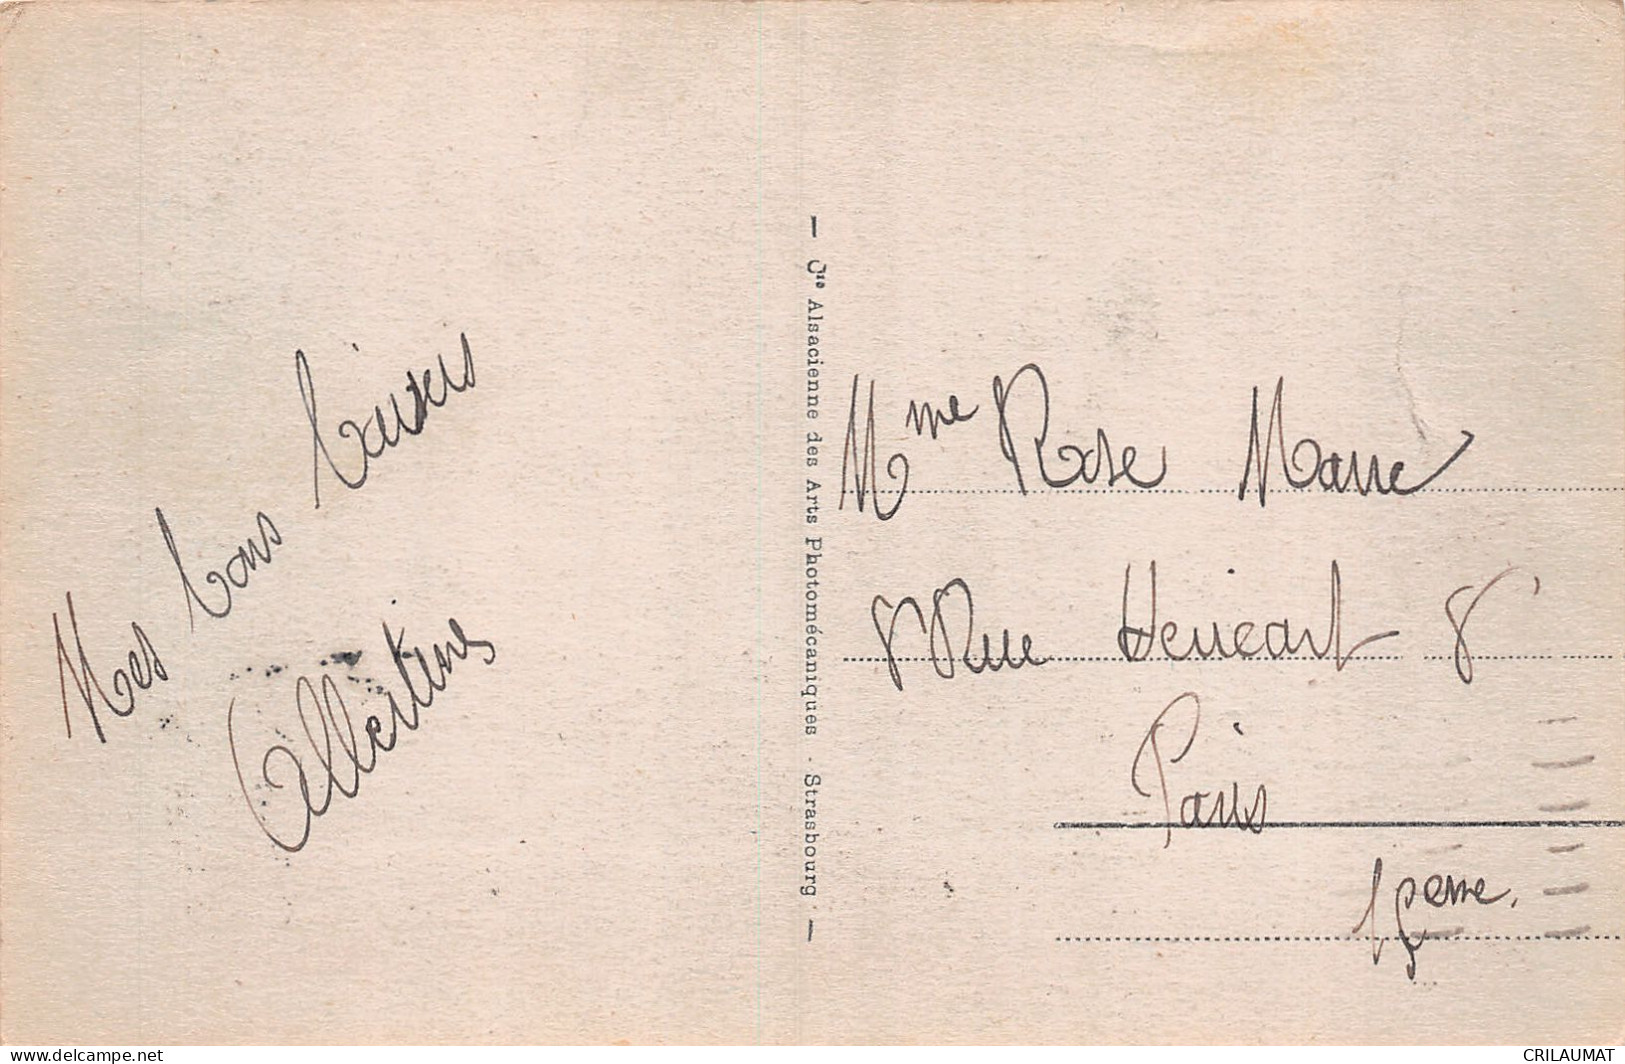 Mes bons baisers
Albertine
— Cie Alsacienne des Arts Photomécaniques - Strasbourg —
Mme Rose Marre
8 Rue Henri 8
Paris
15eme.
www.delcampe.net
CRILAUMAT